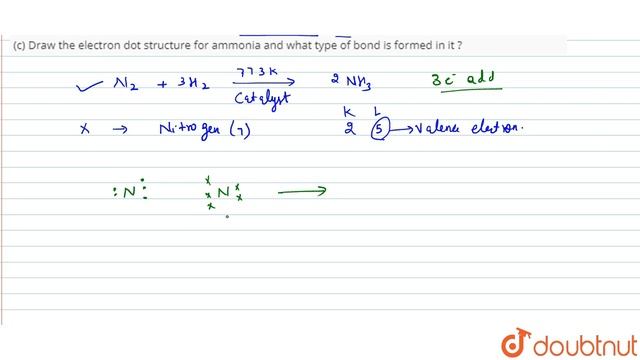 (c) Draw the electron dot structure for ammonia and what type of bond is formed in it ?
✓ N2 + 3H2 773K Catalyst → 2 NH3 3e⁻ add
K L
x → Nitrogen (7) 2 5 → Valence electron.
:N: xN → 
doubtnut